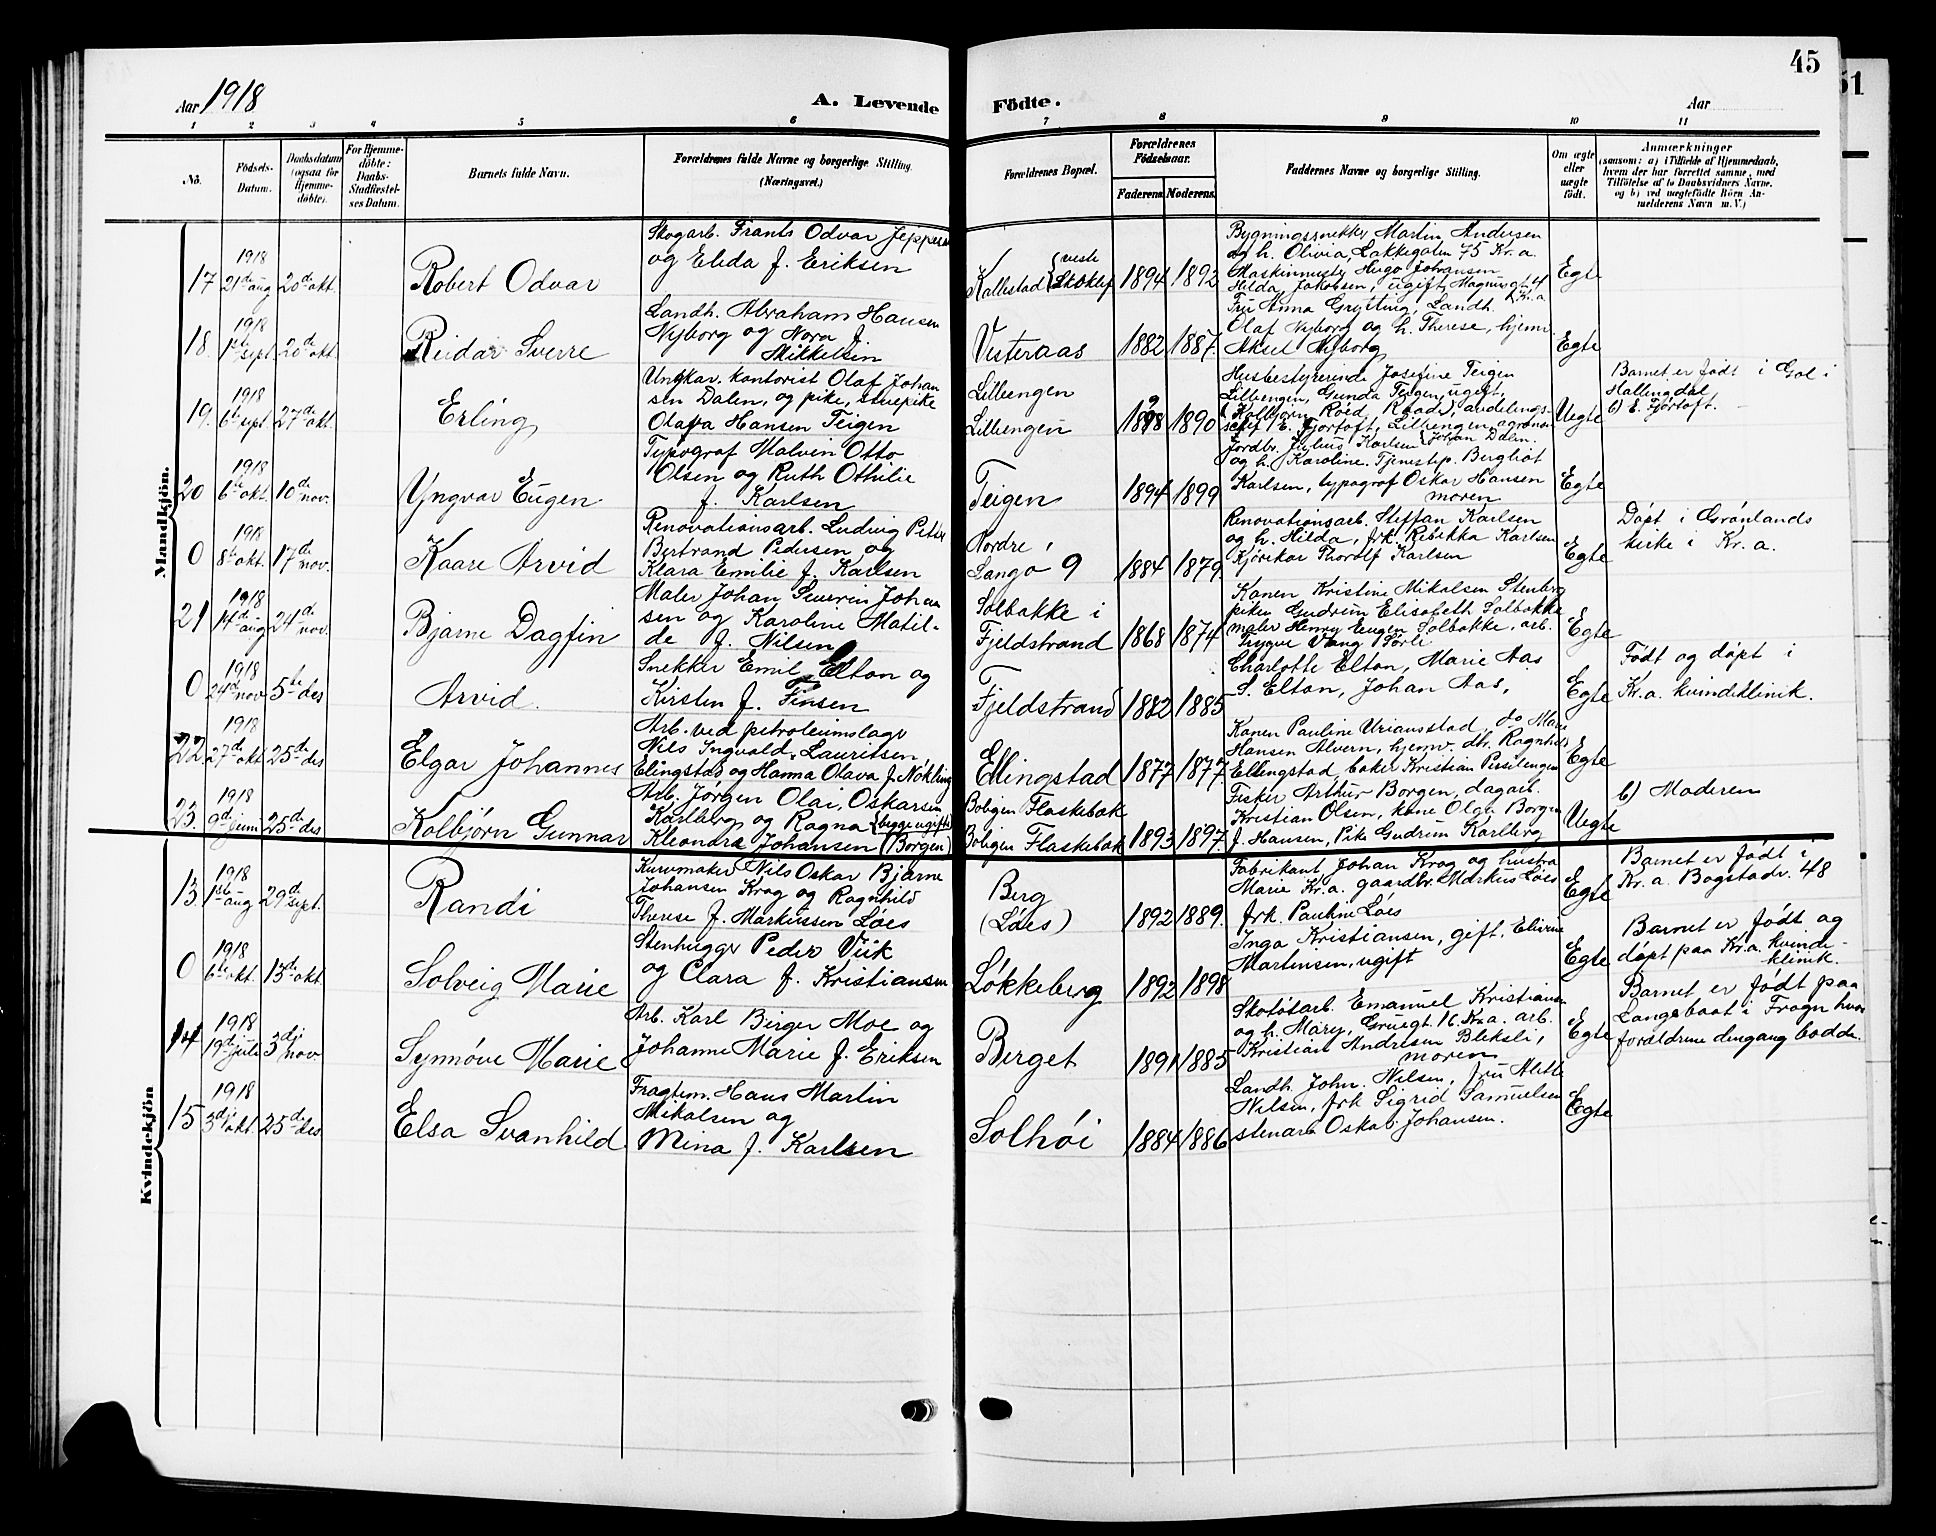 45
51
Aar 1918
A. Levende
Födte.
Aar
1 2 3 4 5 6 7 8 9 10 11
No.
Födsels-
Datum.
Daabsdatum
(ogsaa for
Hjemme-
døbte).
For Hjemme-
døbte:
Daabs-
Stadfæstel-
ses Datum.
Barnets fulde Navn.
Forældrenes fulde Navne og borgerlige Stilling.
(Næringsvei.)
Forældrenes Bopæl.
Forældrenes
Fødselsaar.
Faderens Moderens
Faddernes Navne og borgerlige Stilling.
Om ægte
eller
uægte
født.
Anmærkninger
(saasom: a) i Tilfælde af Hjemmedaab,
hvem der har forrettet samme, med
Tilføielse af to Daabsvidners Navne.
og b) ved uægtefødte Börn An-
melderens Navn m. V.)
Mandkjön.
17
1918
21de aug
20de okt.
Robert Odvar
Skogarb. Frants Odvar Jeppesen
og Elida f. Eriksen
Kallestad
1894 1892
Bygningssnekker Martin Andersen
og h. Olivia, Lakkegaten 75 Kr.a.
Maskinmester Hugo Johansen
Hilda Jakobsen, ugift, Magnusgt. 4
Kr.a
Egte
18.
1918
1ste sept
20de okt.
Reidar Sverre
Landh. Abraham Hansen
Nyborg og Nora f.
Mikkelsen
Vesteraas
1882 1887.
Fru Anna Grytting, Landh.
Olaf Nyborg og h. Therese, hjemv.
Aksel Nyborg
Egte
19.
1918
6te sept.
27de okt.
Erling
Ungkar. kontorist Olaf Johan
sen Dalen, og pike, stuepike
Olava Hansen Teigen
Lilleengen
Lilleengen
1890
Husbestyrerinde Josefine Teigen
Lilleengen, Gunda Teigen, ugift,
Kolbjørn Røed, Raade, avdelings-
schef E. Fjørtoft, Lilleengen agronom
Johan Dalen.
Uegte
Barnet er født i Gol i
Hallingdal
b) E. Fjørtoft.
20
1918
6te okt.
10de nov.
Yngvar Eugen
Typograf Malvin Otto
Olsen og Ruth Othilie
f. Karlsen
Teigen
1894 1899
Jordbr. Julius Karlsen
og h. Karoline. Tjenestep. Bergliot
Karlsen, typograf Oskar Hansen
moren
Egte
0
1918
8de okt.
17de nov.
Kaare Arvid
Renovationsarb. Ludvig Peter
Bertrand Pedersen og
Klara Emilie f. Karlsen
Nordre
Langø 9
1884 1879.
Renovationsarb. Steffan Karlsen
og h. Hilda, frk. Rebekka Karlsen
Kjørekar Thorolf Karlsen
Egte
Døpt i Grønlands
kirke i Kr.a.
21
1918
14de aug
24de nov.
Bjarne Dagfin
Maler Johan Severin Johan
sen og Karoline Matil-
de f. Nilsen
Solbakke i
Fjeldstrand
1868 1874
Konen Kristine Mikalsen Stenberg
piken Gudrun Elisabeth Solbakke
maler Henry Eugen Solbakke, arb.
Trygve Vang Sørli
Egte
0
1918
24de nov
5te des
Arvid.
Snekker Emil Elton og
Kirsten f. Finsen
Fjeldstrand
1882 1885
Charlotte Elton, Marie Aas
S. Elton, Johan Aas,
Egte
Født og døpt i
Kr.a. kvindeklinik.
22
1918
27de okt
25de des
Elgar Johannes
Arb. ved petroleumslage
Nils Ingvald Lauritsen
Elingstad og Hanna Olava f. Nökling
Ellingstad
1877 1877.
Konen Pauline Uriansstad, do Marie
Hansen Alvern, hjemv. dtr. Ragnhild
Ellingstad, baker Kristian Persilengen
Egte
23.
1918
9de juni
25de des
Kolbjørn Gunnar
Arb. Jørgen Olai Oskarsen
Karlberg og Ragna (begge ugift)
Kleandra Johansen (Borgen)
Boligen Flaskebæk
Boligen Flaskebæk
1893 1897.
Fisker Arthur Borgen, dagarb.
Kristian Olsen, kone Olga Borgen
f. Hansen, Pike Gudrun Karlberg
Uegte
b) Moderen
Kvindekjön
13.
1918
1ste aug
29de sept.
Randi
Kurvmaker Nils Oskar Bjarne
Johansen Krog og Ragnhild
Therese f. Markussen Løes
Berg
(Løes)
1892 1889.
Fabrikant Johan Krog og hustru
Marie Kr.a. gaardbr. Markus Løes
frk. Pauline Løes
Egte
Barnet er født i
Kr.a. Bogstadv. 48
0
1918
6te okt.
13de okt
Solveig Marie
Stenhugger Peder Viik
og Clara f. Kristiansen
Løkkeberg
1892 1898
Inga Kristiansen, gift, Elivine
Martensen, ugift
Egte
Barnet er født og
døpt paa Kr.a. kvinde-
klinik.
14
1918
19de juli
3dje nov
Synnøve Marie
Arb. Karl Birger Moe og
Johanne Marie f. Eriksen
Berget
1891 1885
Skotøiarb. Emanuel Kristiansen
og h. Mary, Gruegt. 16 Kr.a. arb.
Kristian Andresen Bleksli,
moren
Egte
Barnet er født paa
Langebaat i Frogn hvor
forældrene dengang bodde.
15
1918
3dje okt.
25de des
Elsa Svanhild.
Fragtem. Hans Martin
Mikalsen og
Mina f. Karlsen
Solhøi
1884 1886
Landh. John. Nilsen, fru Alette
Nilsen, frk Sigrid Samuelsen
stenarb Oskar Johansen.
Egte